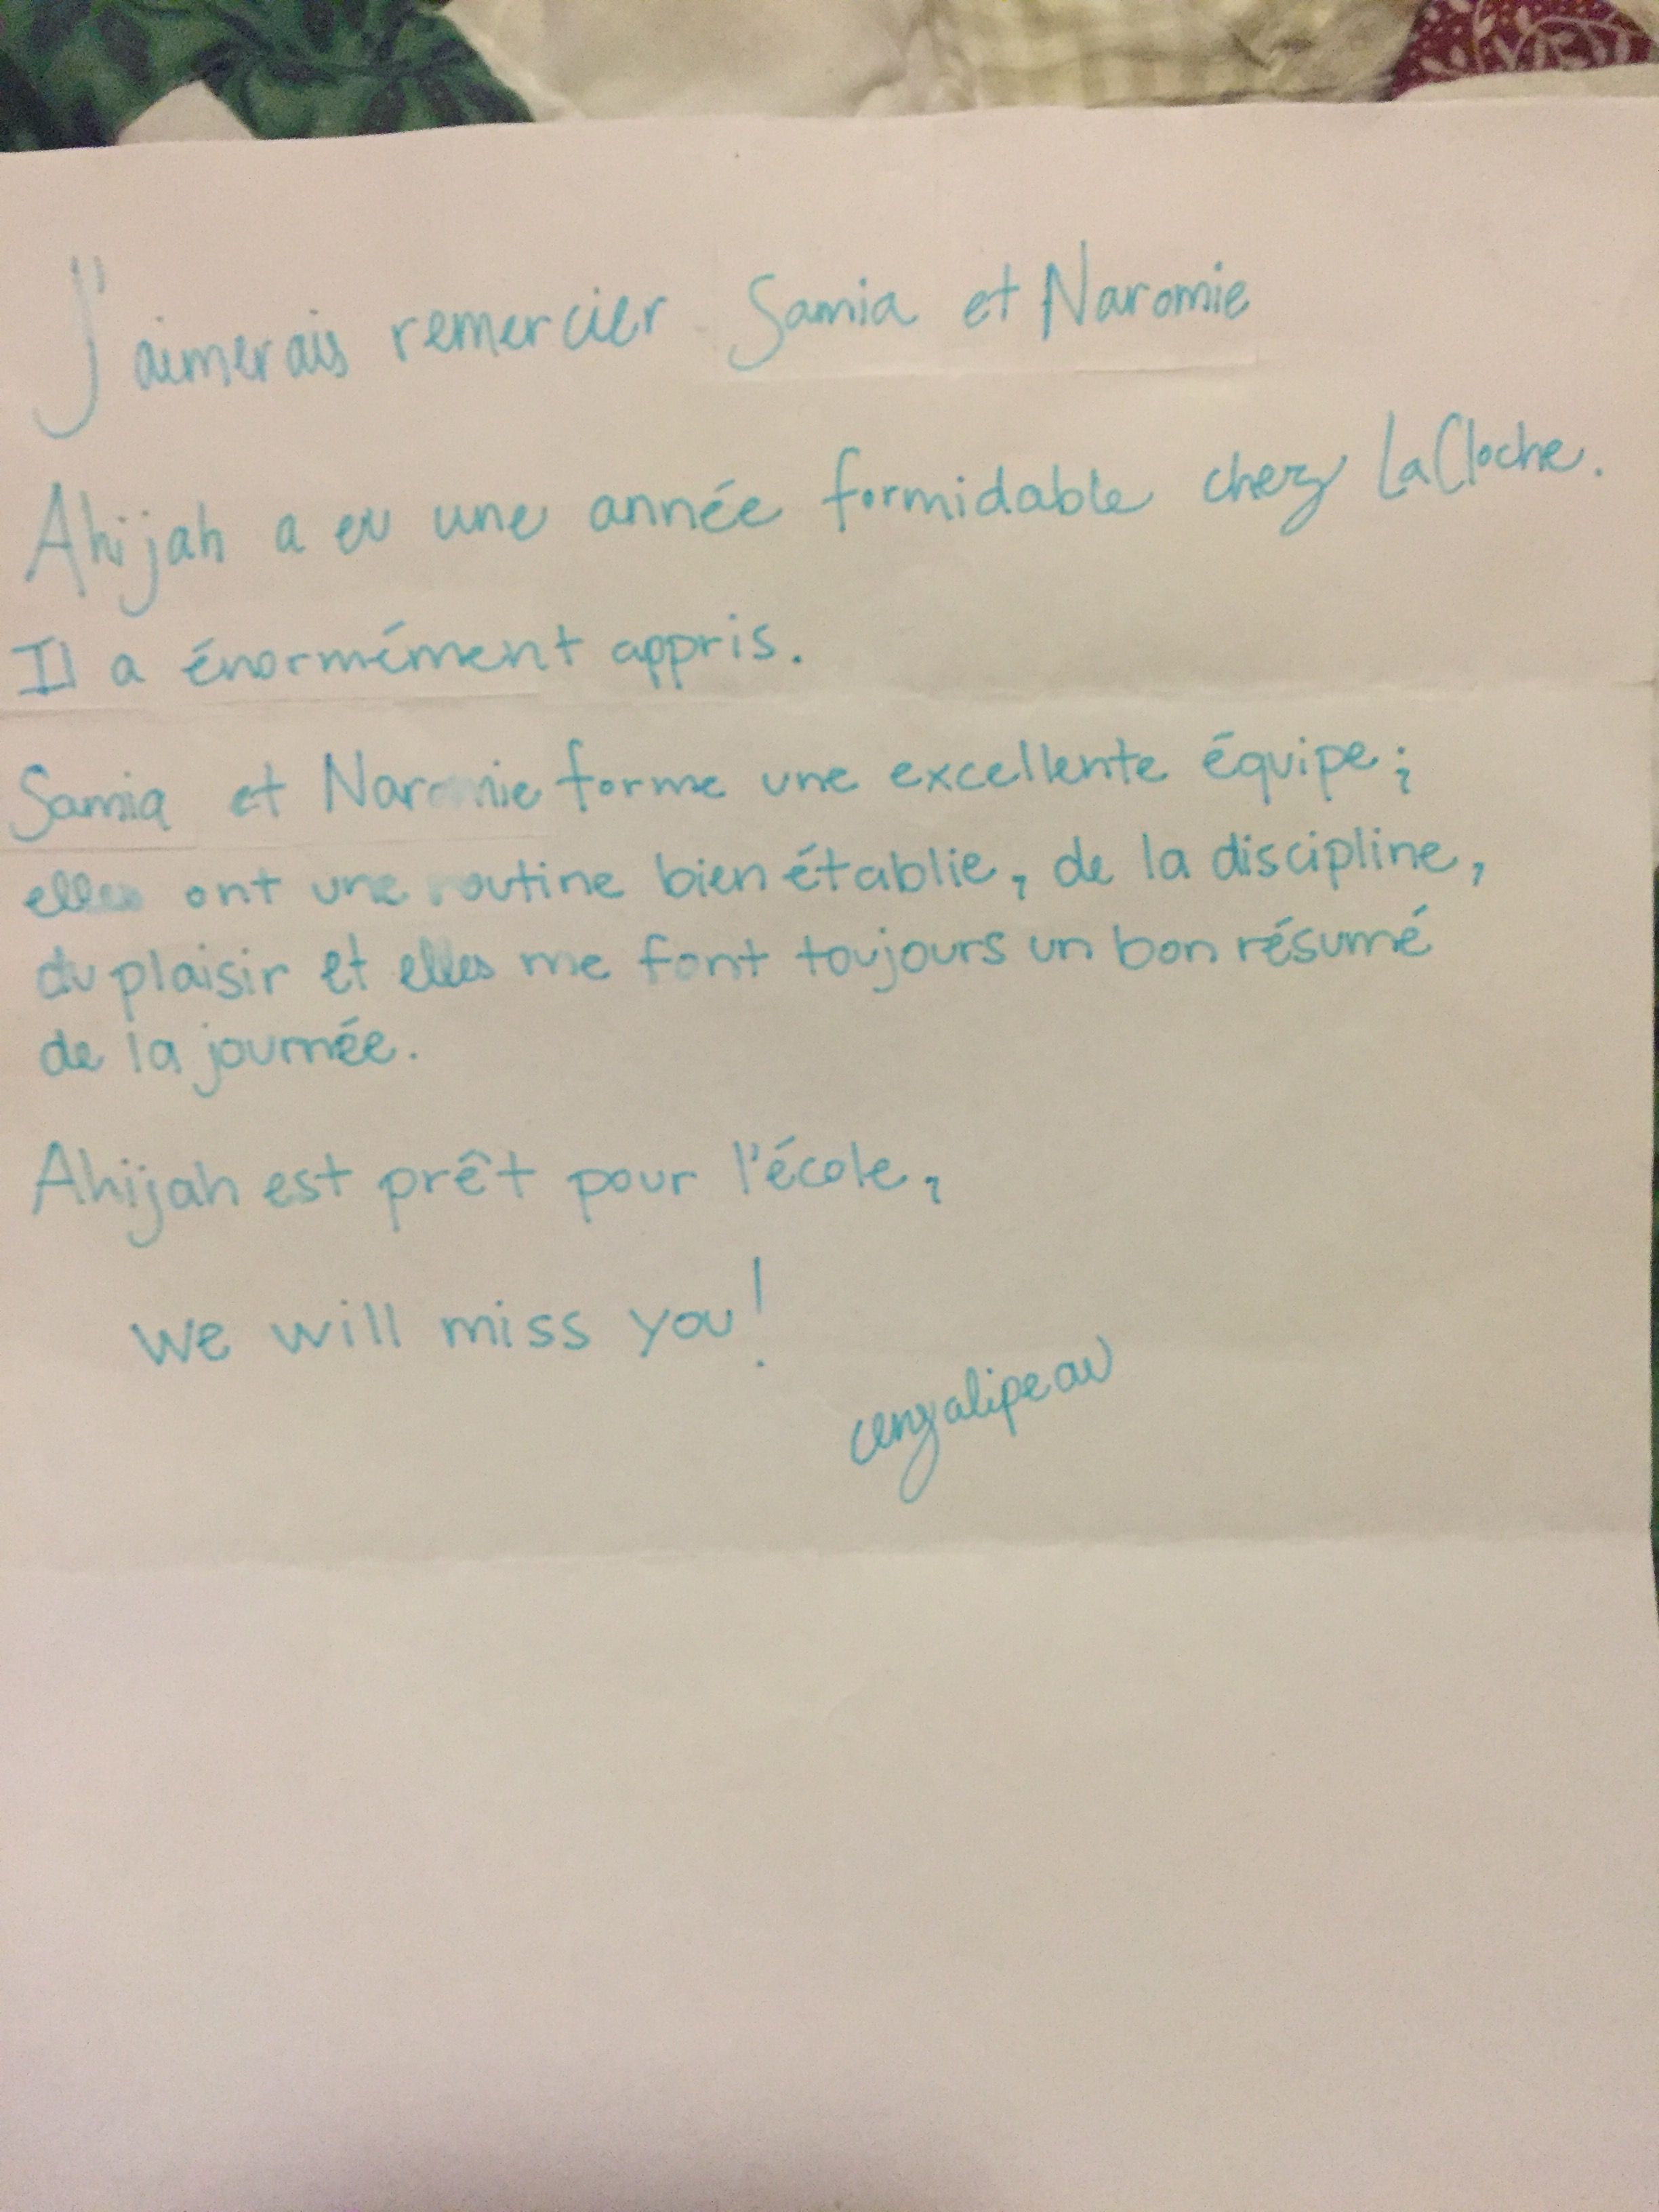 J'aimerais remercier Samia et Naromie
Ahijah a eu une année formidable chez LaCloche.
Il a énormément appris.
Samia et Naromie forme une excellente équipe;
elles ont une routine bien établie, de la discipline,
du plaisir et elles me font toujours un bon résumé
de la journée.
Ahijah est prêt pour l'école,
we will miss you!